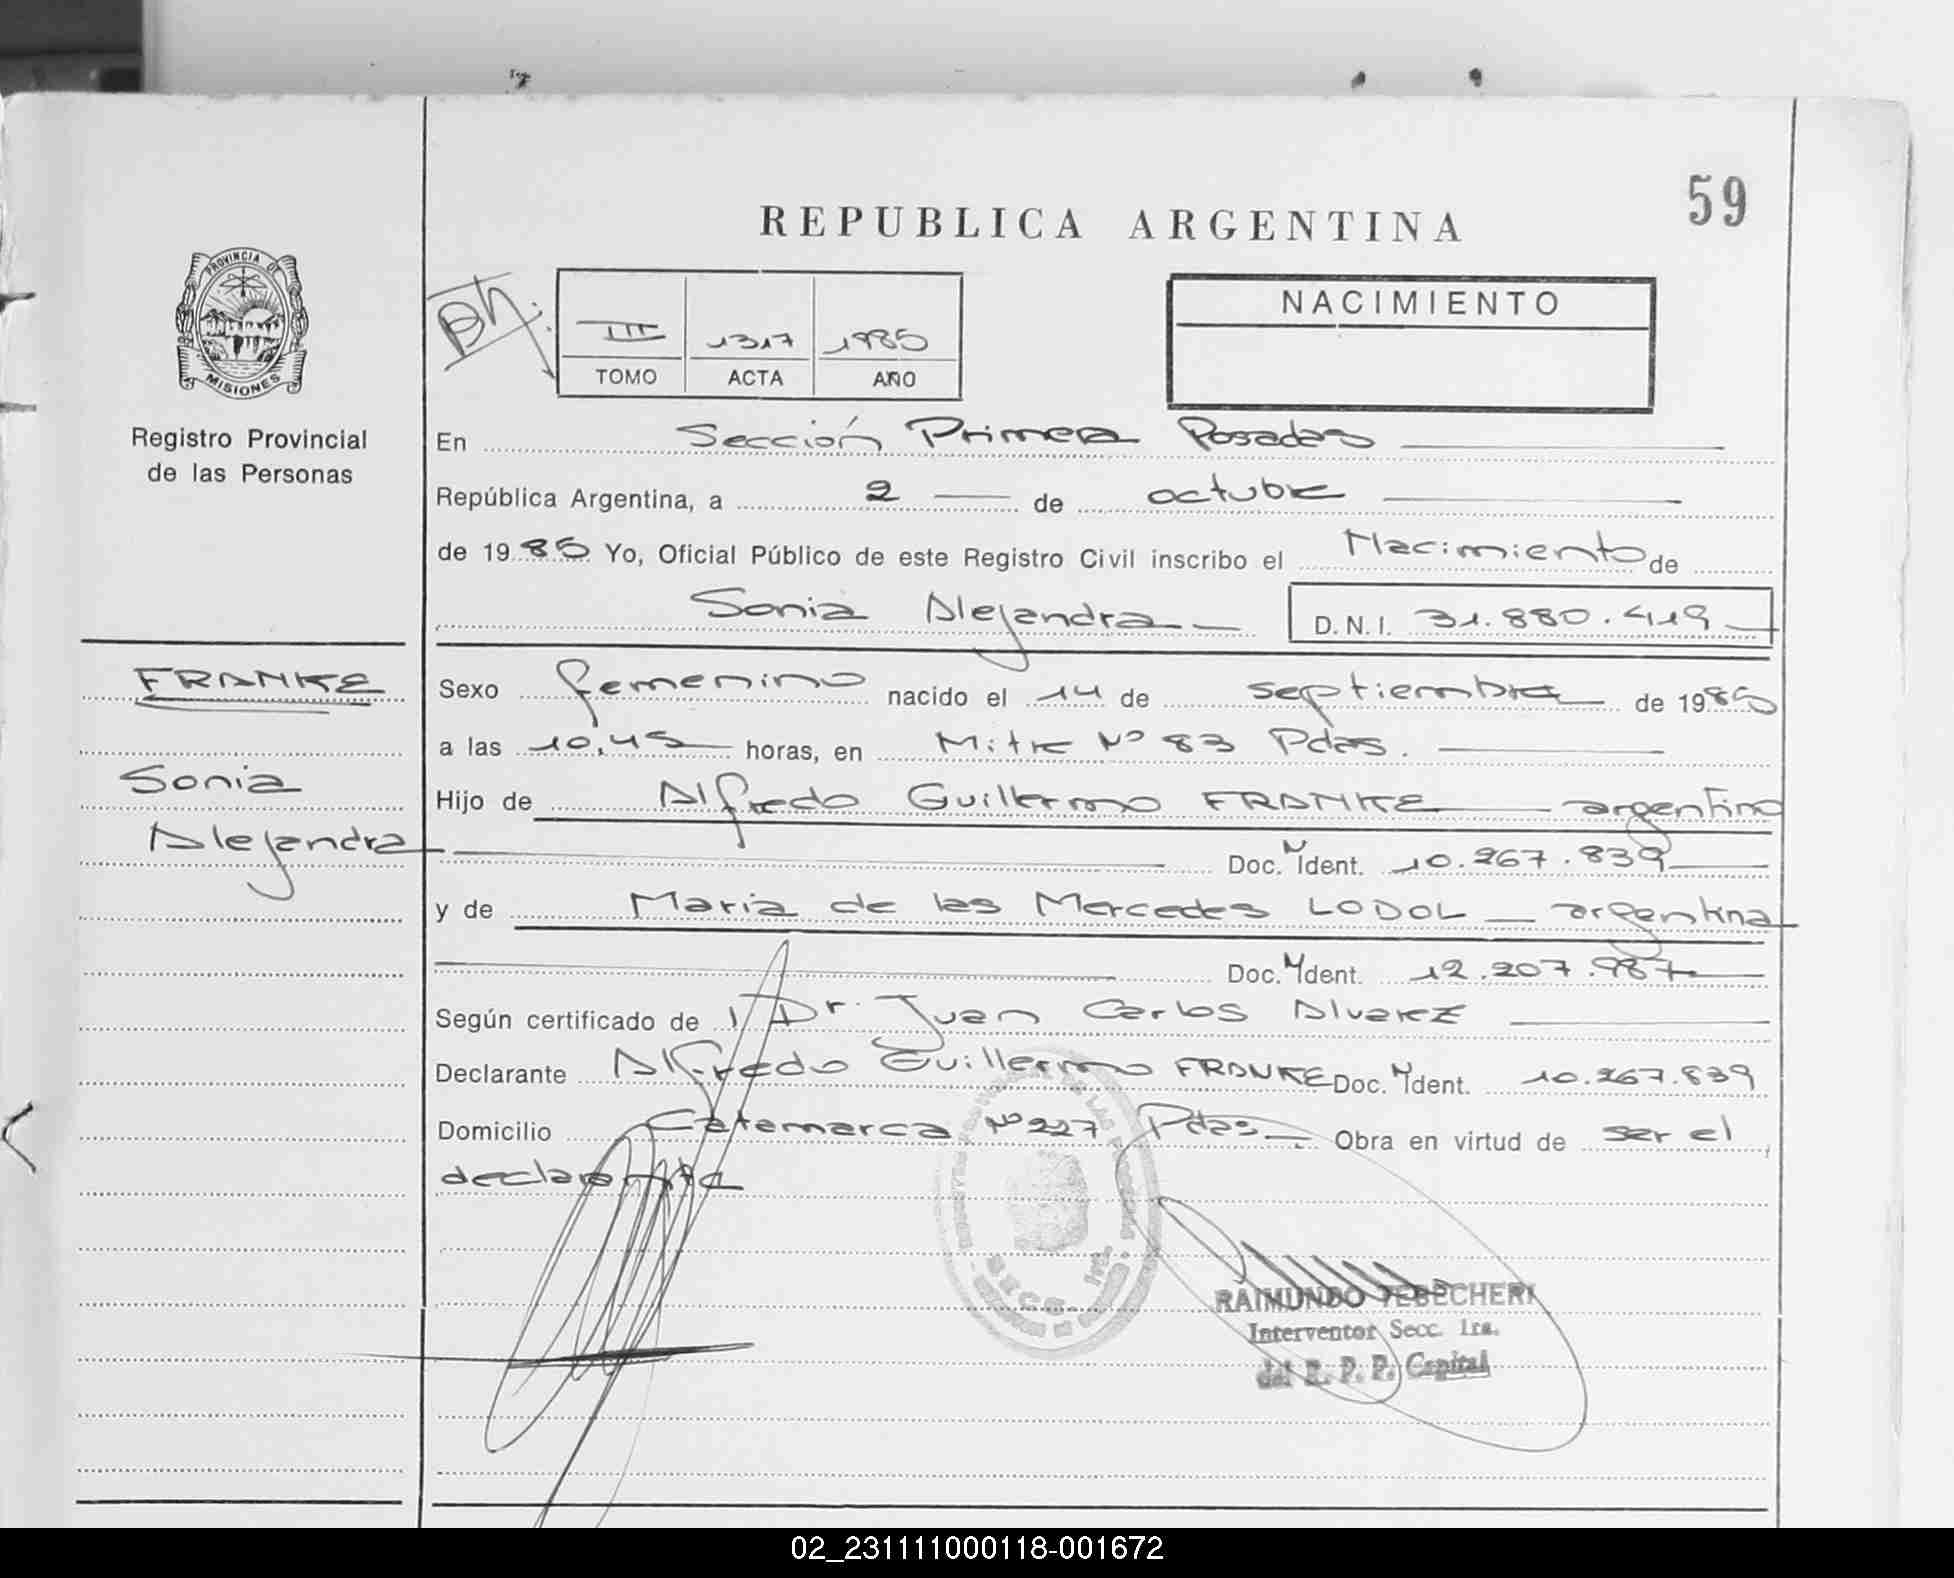 59
REPUBLICA ARGENTINA
PROVINCIA DE
MISIONES
Registro Provincial
de las Personas
III 1317 1985
TOMO ACTA AÑO
NACIMIENTO
En Sección Primera Posadas
República Argentina, a 2 de octubre
de 1985 Yo, Oficial Público de este Registro Civil inscribo el Nacimiento de
Sonia Alejandra D. N. I. 31.880.419
FRANKE
Sonia
Alejandra
Sexo femenino nacido el 14 de septiembre de 1985
a las 10,45 horas, en Mitre Nº 83 Pdas.
Hijo de Alfredo Guillermo FRANKE argentino
Doc. N Ident. 10.267.839
y de Maria de las Mercedes LODOL argentina
Doc. N Ident. 12.207.987
Según certificado de Dr. Juan Carlos Alvarez
Declarante Alfredo Guillermo FRANKE Doc. N Ident. 10.267.839
Domicilio Catamarca Nº 227 Pdas Obra en virtud de ser el
declarante
SECC. 1ra.
RAIMUNDO TEBECHERI
Interventor Secc. 1ra.
del R. P. P. Capital
02_231111000118-001672